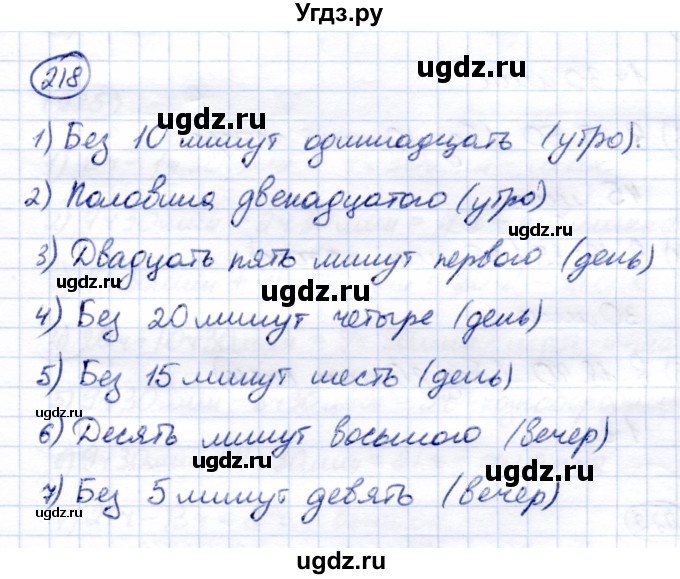 Угдз.ру
218
ugdz.ru
ugdz.ru
1) Без 10 минут одиннадцать (утро).
ugdz.ru
2) Половина двенадцатого (утро)
ugdz.ru
3) Двадцать пять минут первого (день)
ugdz.ru
ugdz.ru
4) Без 20 минут четыре (день)
ugdz.ru
ugdz.ru
5) Без 15 минут шесть (день)
ugdz.ru
6) Десять минут восьмого (вечер)
ugdz.ru
ugdz.ru
7) Без 5 минут девять (вечер)
ugdz.ru
ugdz.ru